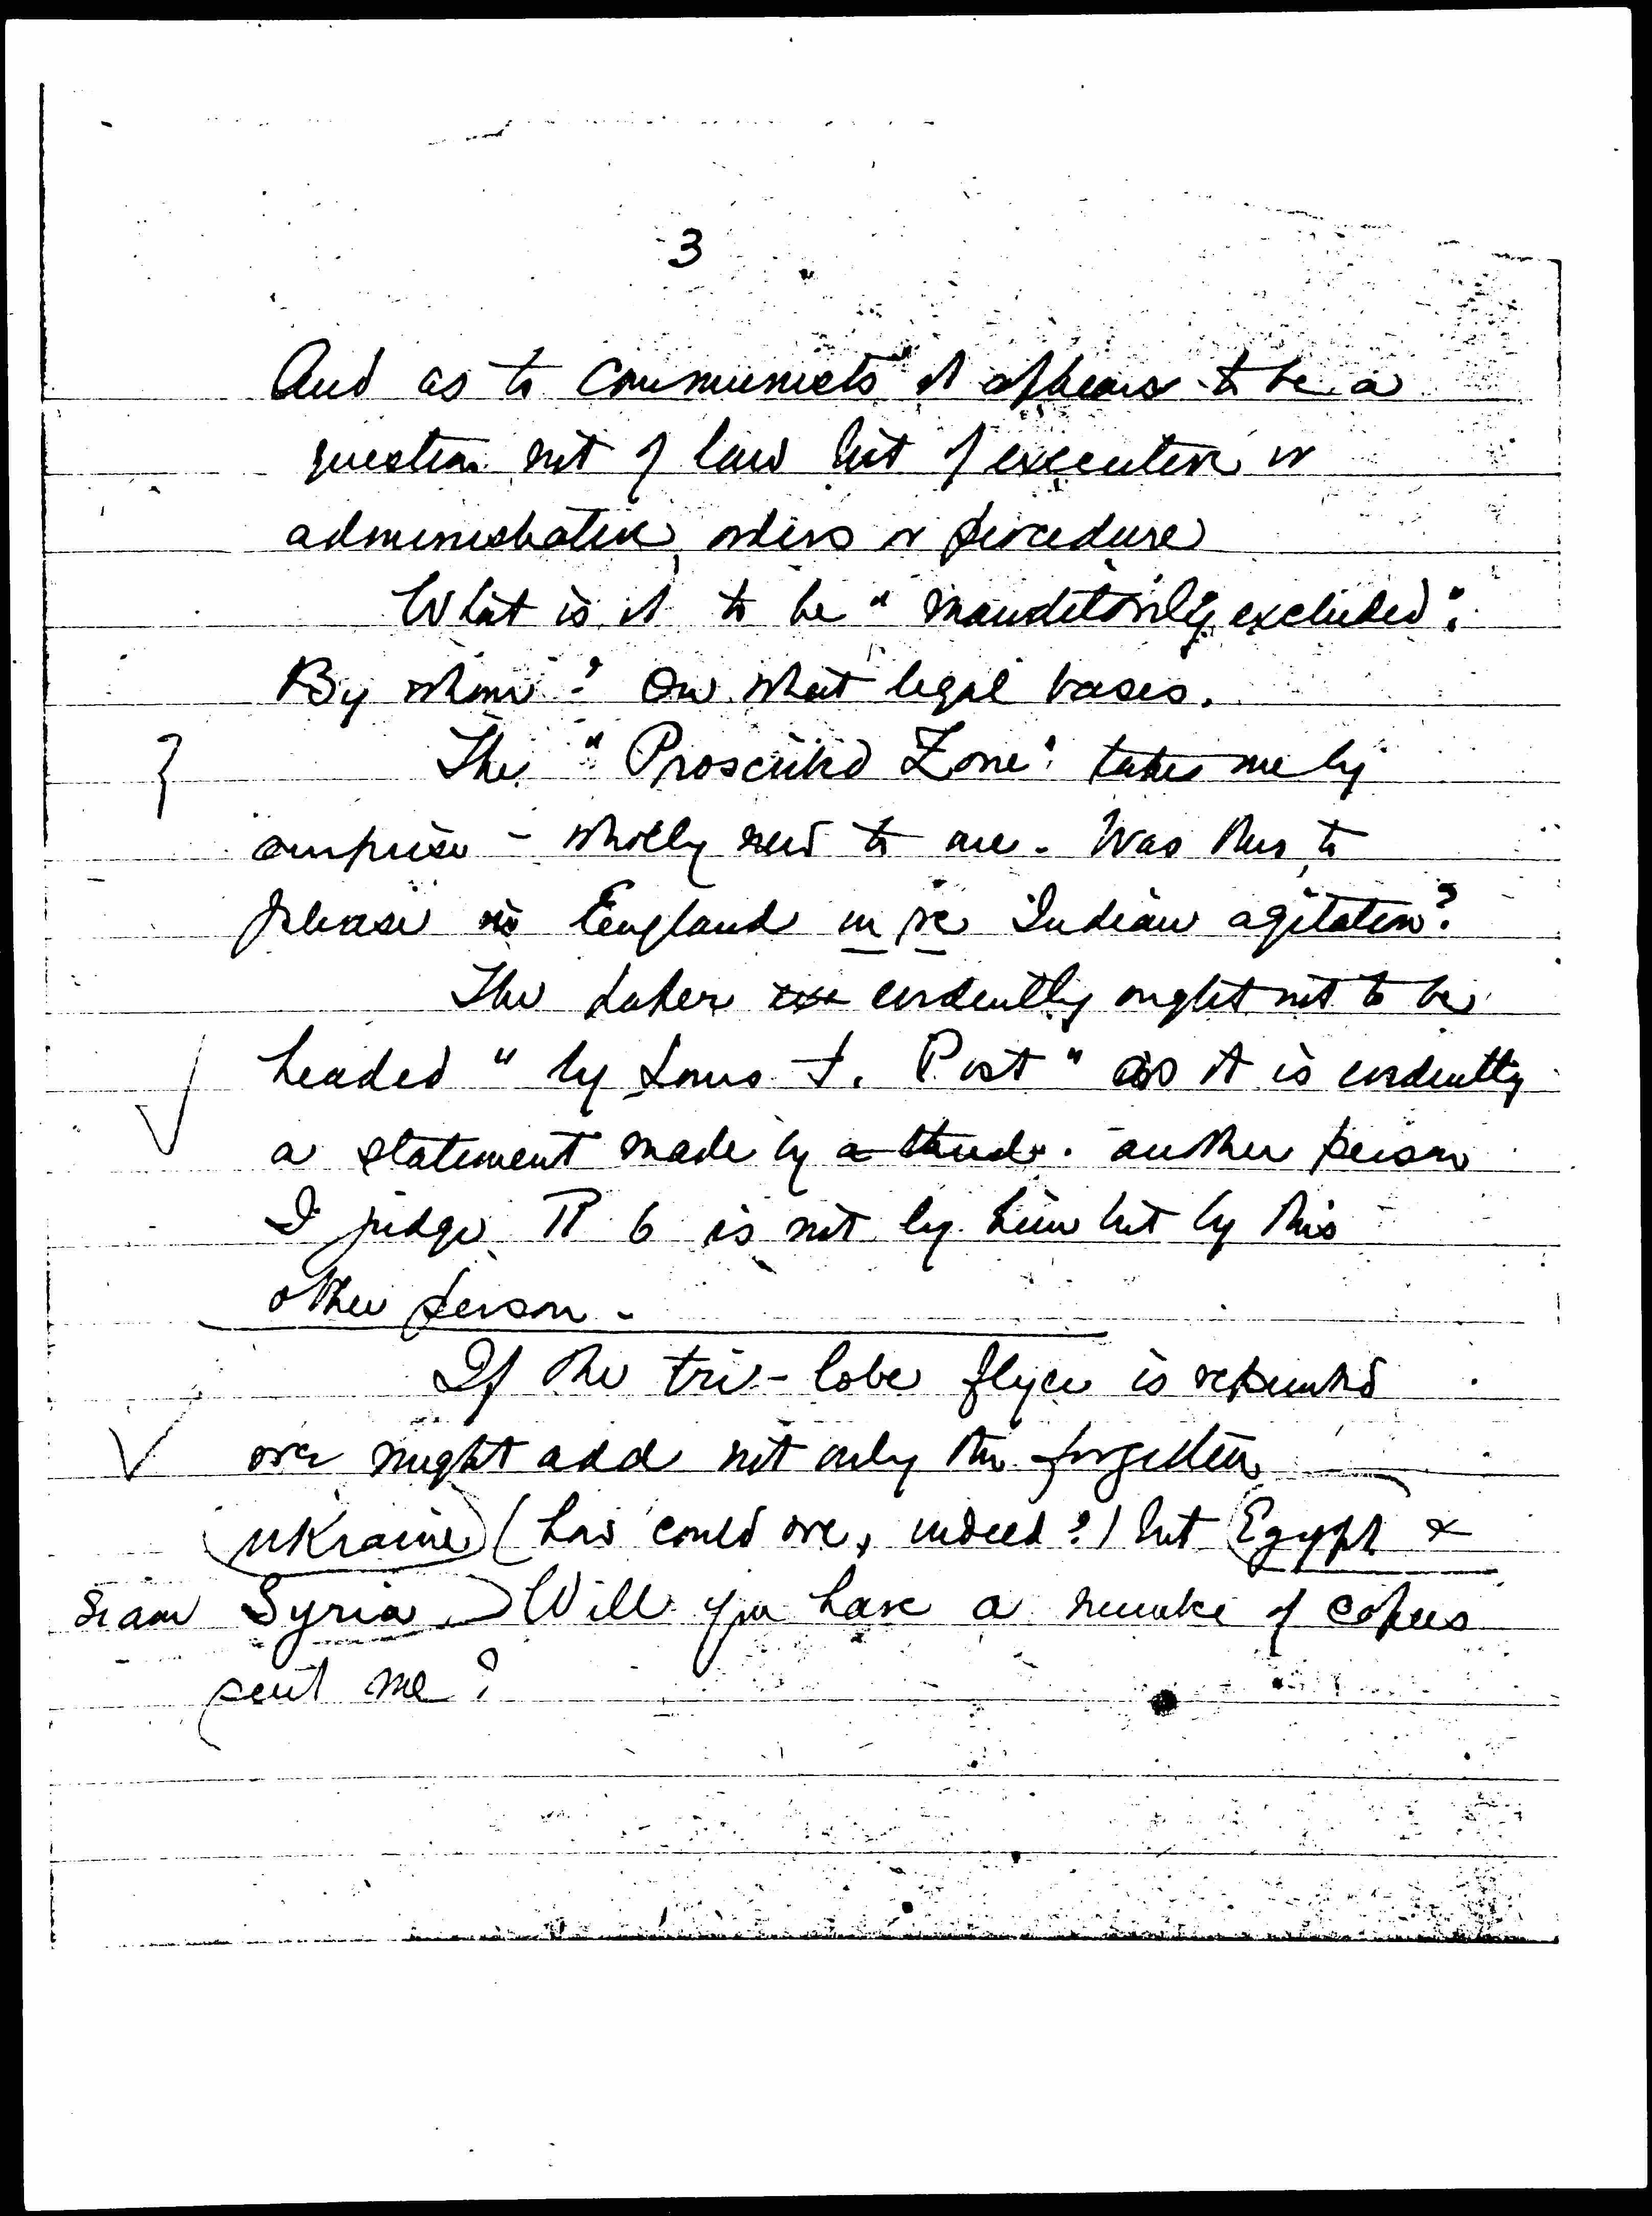 3
And as to Communists it appears to be a
question not of law but of executive or
administrative orders or procedure
What is it to be "manditorily excluded".
By whom? On what legal bases.
? The "Proscribd Zone" takes me by
surprise - wholly new to me. Was this to
please England in re Indian agitation?
The paper evidently ought not to be
headed "by Louis F. Post" as it is evidently
a statement made by a third. another person
I judge ¶ 6 is not by him but by this
other person -
If the tri-lobe flyer is reprinted
one might add not only the forgotten
Ukraine (how could one, indeed?) but Egypt &
Siam Syria. Will you have a number of copies
sent me?